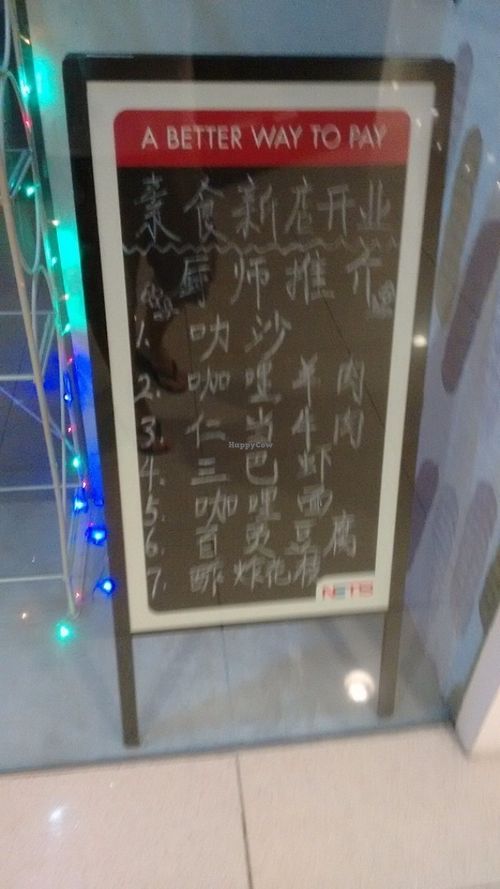 A BETTER WAY TO PAY
素食新店开业
厨师推介
1. 叻沙
2. 咖喱羊肉
3. 仁当牛肉
4. 三巴虾
5. 咖喱面
6. 百灵豆腐
7. 酥炸花枝
NETS
HappyCow